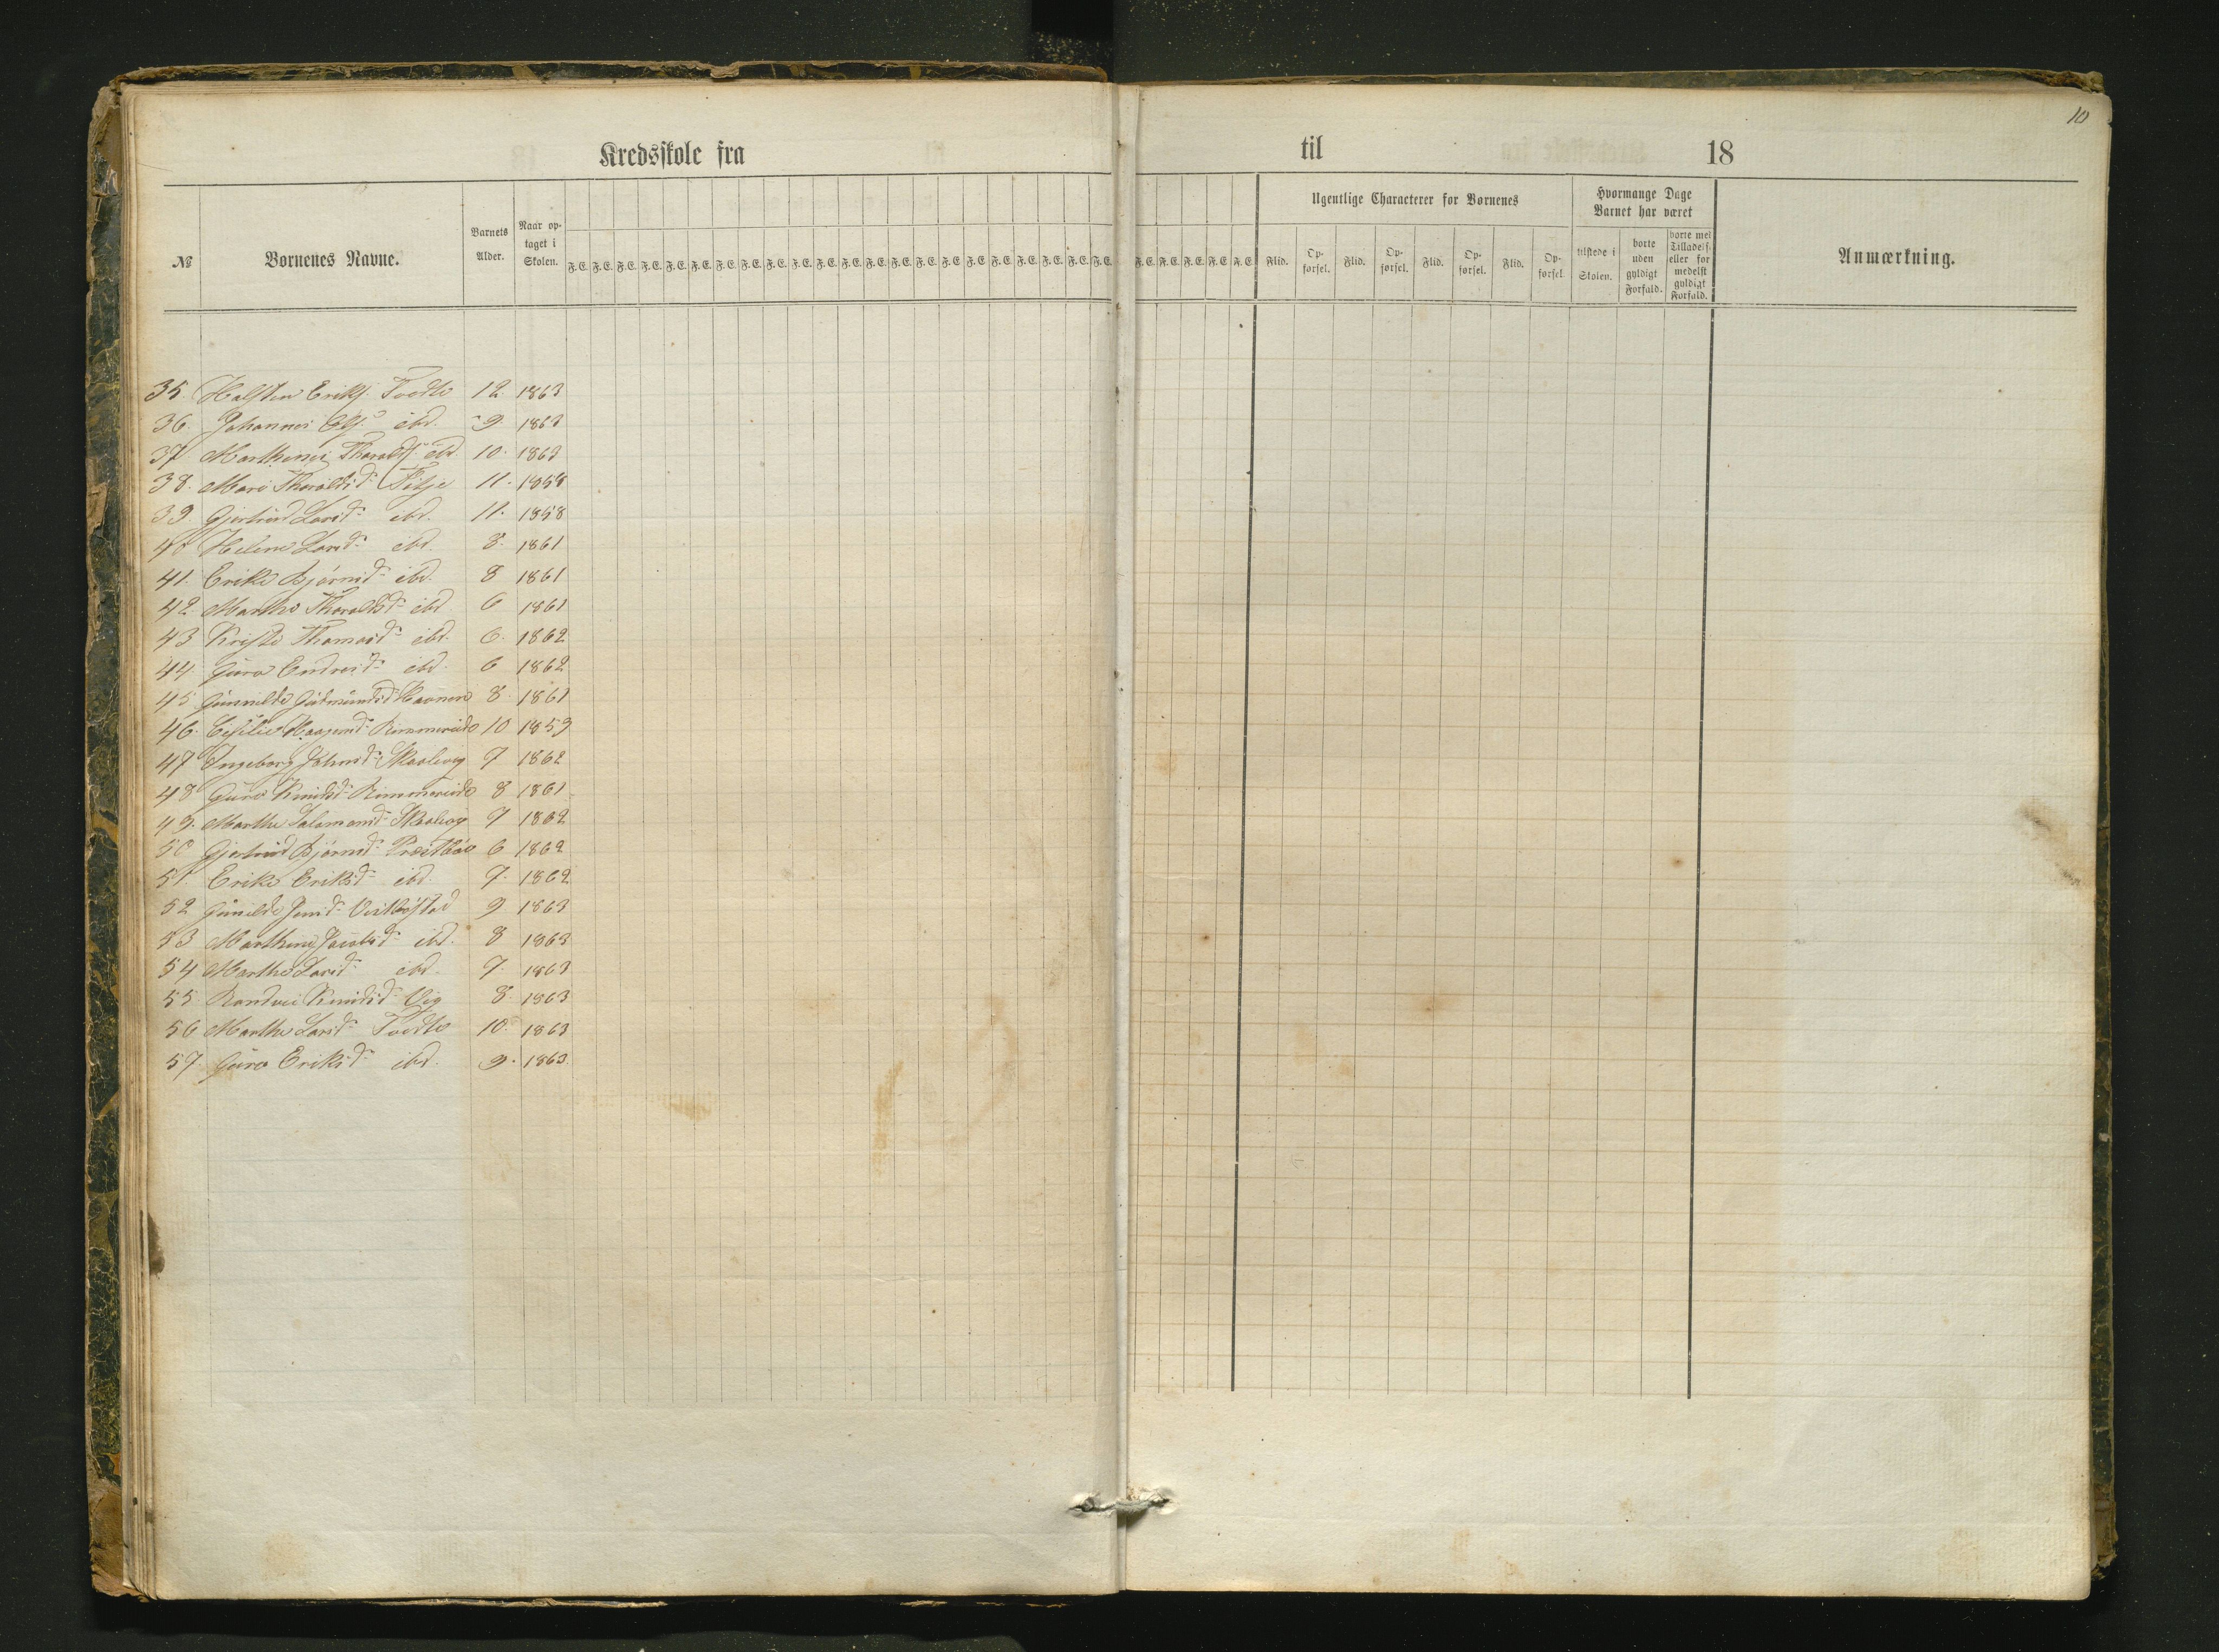 10
Kredsskole fra til 18
№ Børnenes Navne. Barnets Alder. Naar optaget i Skolen. F.E. F.E. F.E. F.E. F.E. F.E. F.E. F.E. F.E. F.E. F.E. F.E. F.E. F.E. F.E. F.E. F.E. F.E. F.E. F.E. F.E. F.E. F.E. F.E. F.E. F.E. F.E.
Ugentlige Characterer for Børnenes
Flid. Opførsel. Flid. Opførsel. Flid. Opførsel. Flid. Opførsel.
Hvormange Dage Barnet har været
tilstede i Skolen. borte uden gyldigt Forfald. borte med Tilladelse eller formedelst gyldigt Forfald.
Anmærkning.
35. Halsten Eriks. Tvedte 12 1863
36. Johannes Ols. ibd. 9 1863
37 Marthines Tharalds. ibd 10 1863
38. Mari Tharaldsd. Fitje 11. 1858
39. Gjertrud Larsd. ibd. 11. 1858
40 Helene Larsd. ibd. 8. 1861
41. Erike Bjørnsd. ibd. 8 1861
42 Martha Tharaldsd. ibd 6 1861
43 Kriste Thomasd. ibd. 6. 1862
44 Guro Endresd. ibd. 6 1862
45 Gunnilde Gutmundsd. Havnen 8. 1861
46. Cisilie Haagensd. Rimmereide 10 1859
47 Ingeborg Johnsd. Skaalevig 7 1862
48 Guro Knudsd. Rimmereide 8 1861
49. Marthe Salamonsd. Skaalevig 7 1862
50 Gjertrud Bjørnsd. Præstbøe 6 1862
51. Erike Eriksd. ibd. 7. 1862
52 Gunilde Jensd. Vestbøstad 9 1863
53 Marthine Jacobsd. ibd. 8 1863
54 Marthe Larsd. ibd. 7. 1863
55. Randvei Knudsd. Vig 8. 1863
56 Marthe Larsd. Tvedte 10. 1863
57. Guro Eriksd. ibd. 9. 1863.